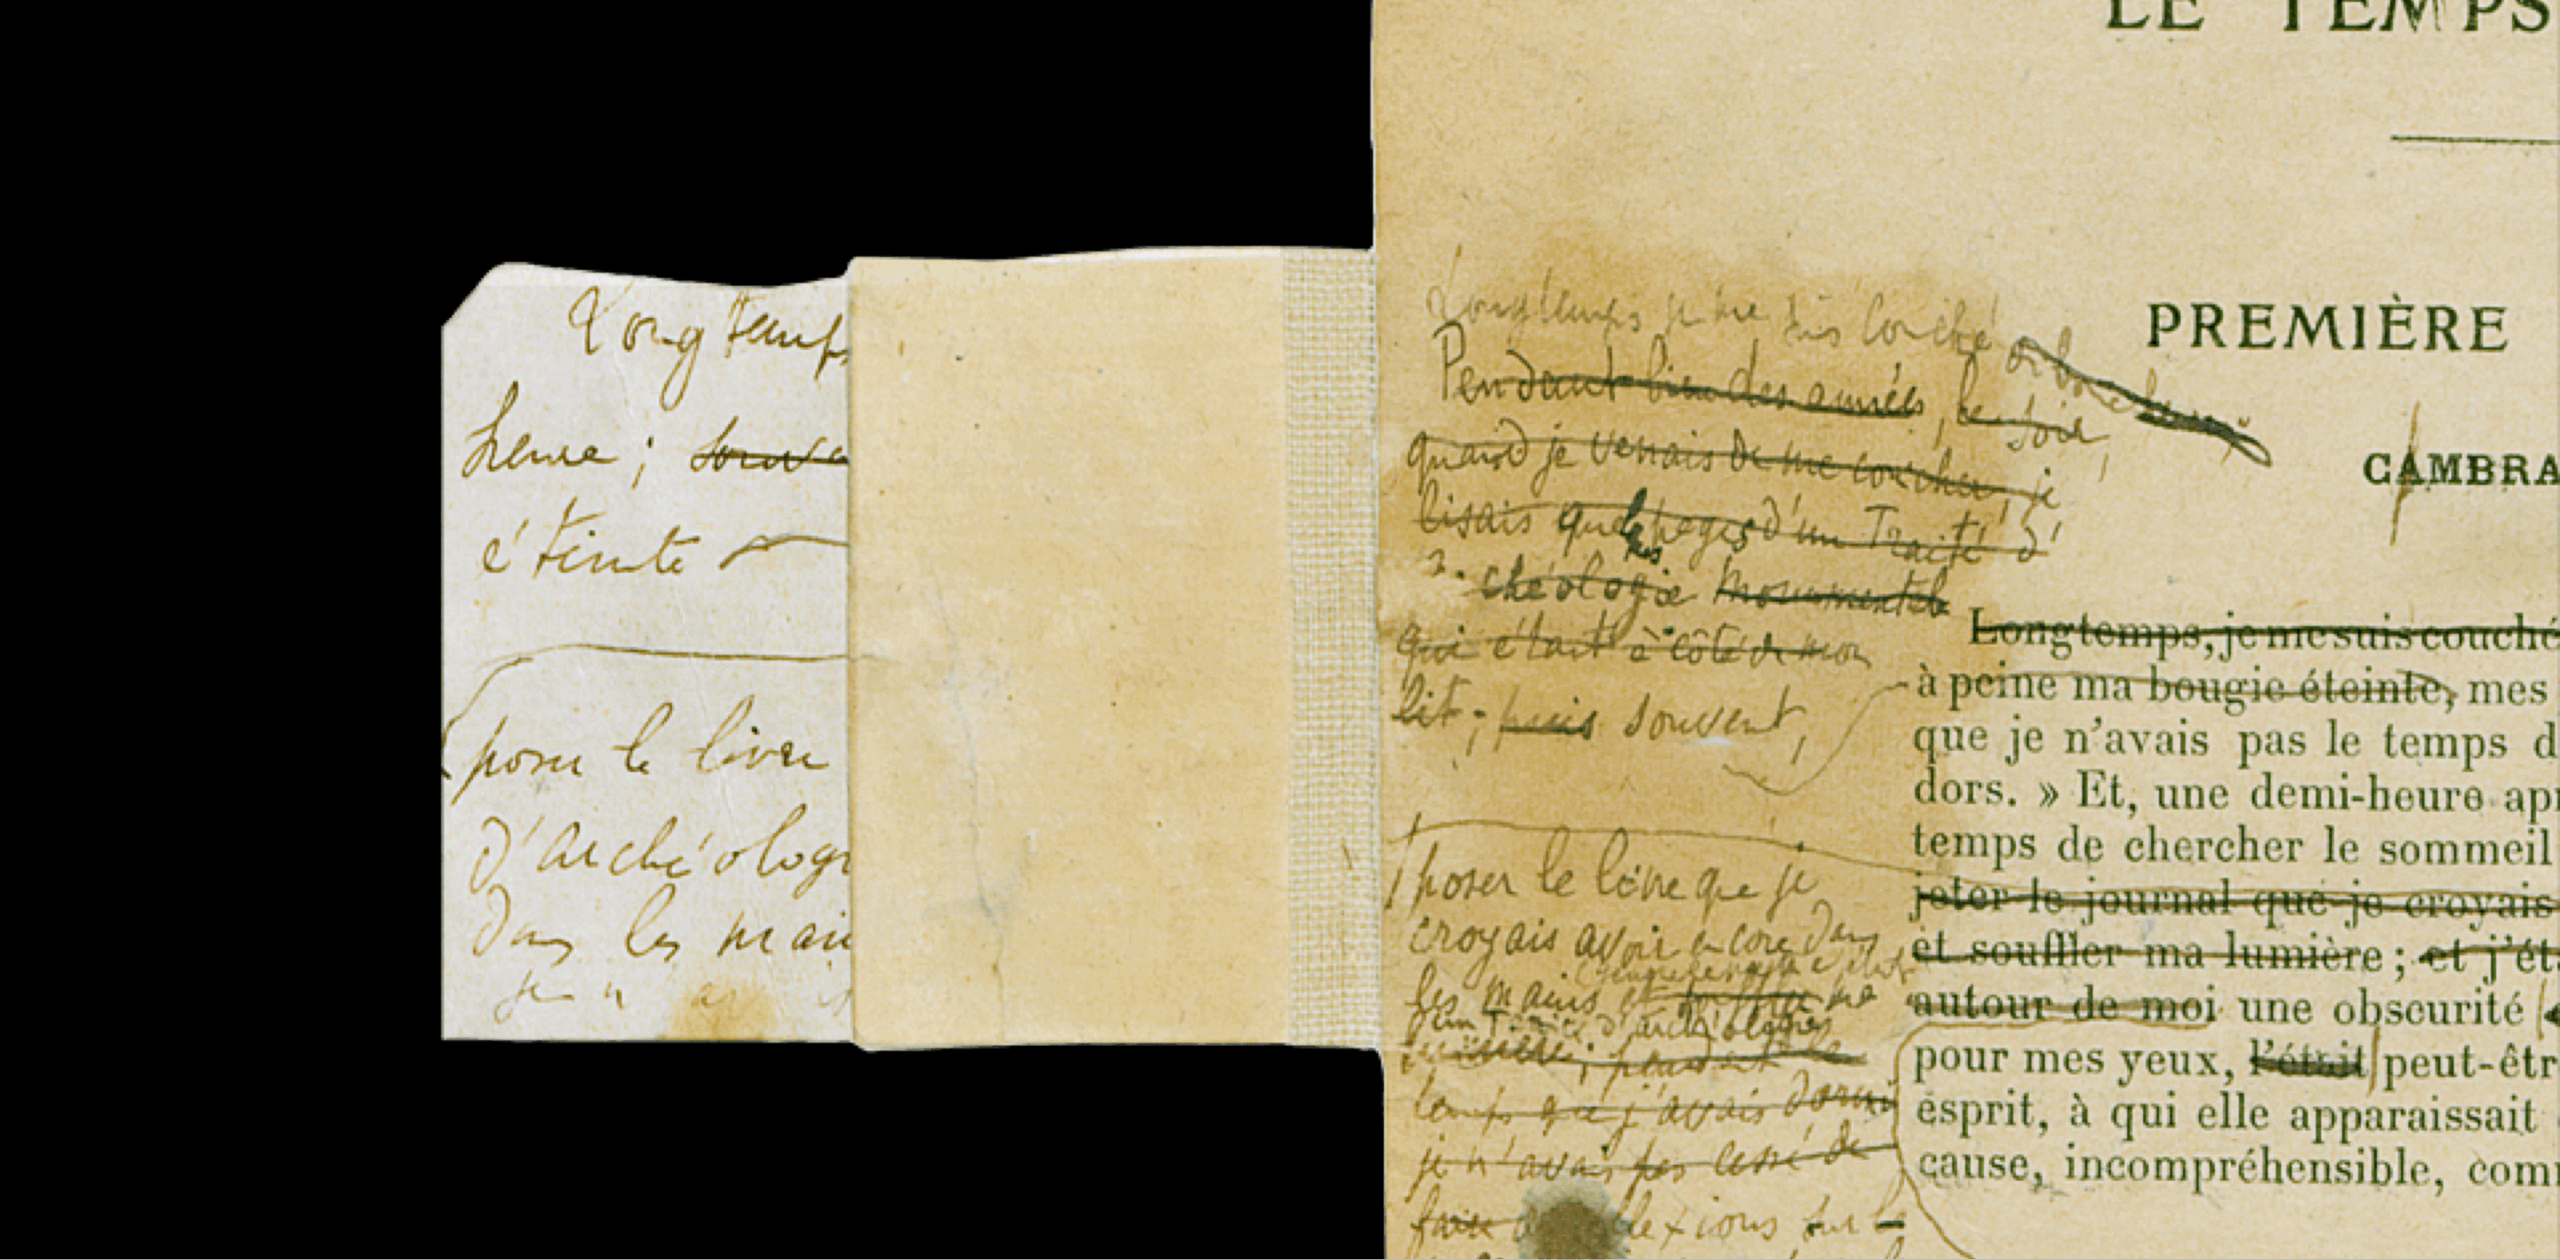 Longtemps
heure ; souve
éteinte
poser le livre
d'archéolog
dans les mai
LE TEMPS
PREMIÈRE
CAMBRA
Longtemps je me suis couché de bonne heure
Pendant bien des années, le soir,
quand je venais de me coucher, je
lisais quelques pages d'un Traité d'
chéologie monumentale
qui était à côté de mon
lit ; puis souvent,
poser le livre que je
croyais avoir encore dans
les mains et souffler ma
d'un Traité d'archéologie
lumière ; pendant le
temps que j'avais dormi
je n'avais pas cessé de
faire des réflexions sur le
Longtemps, je me suis couché
à peine ma bougie éteinte, mes
que je n'avais pas le temps d
dors. » Et, une demi-heure apr
temps de chercher le sommeil
jeter le journal que je croyais
et souffler ma lumière ; et j'ét
autour de moi une obscurité
pour mes yeux, l'était peut-êtr
esprit, à qui elle apparaissait
cause, incompréhensible, com